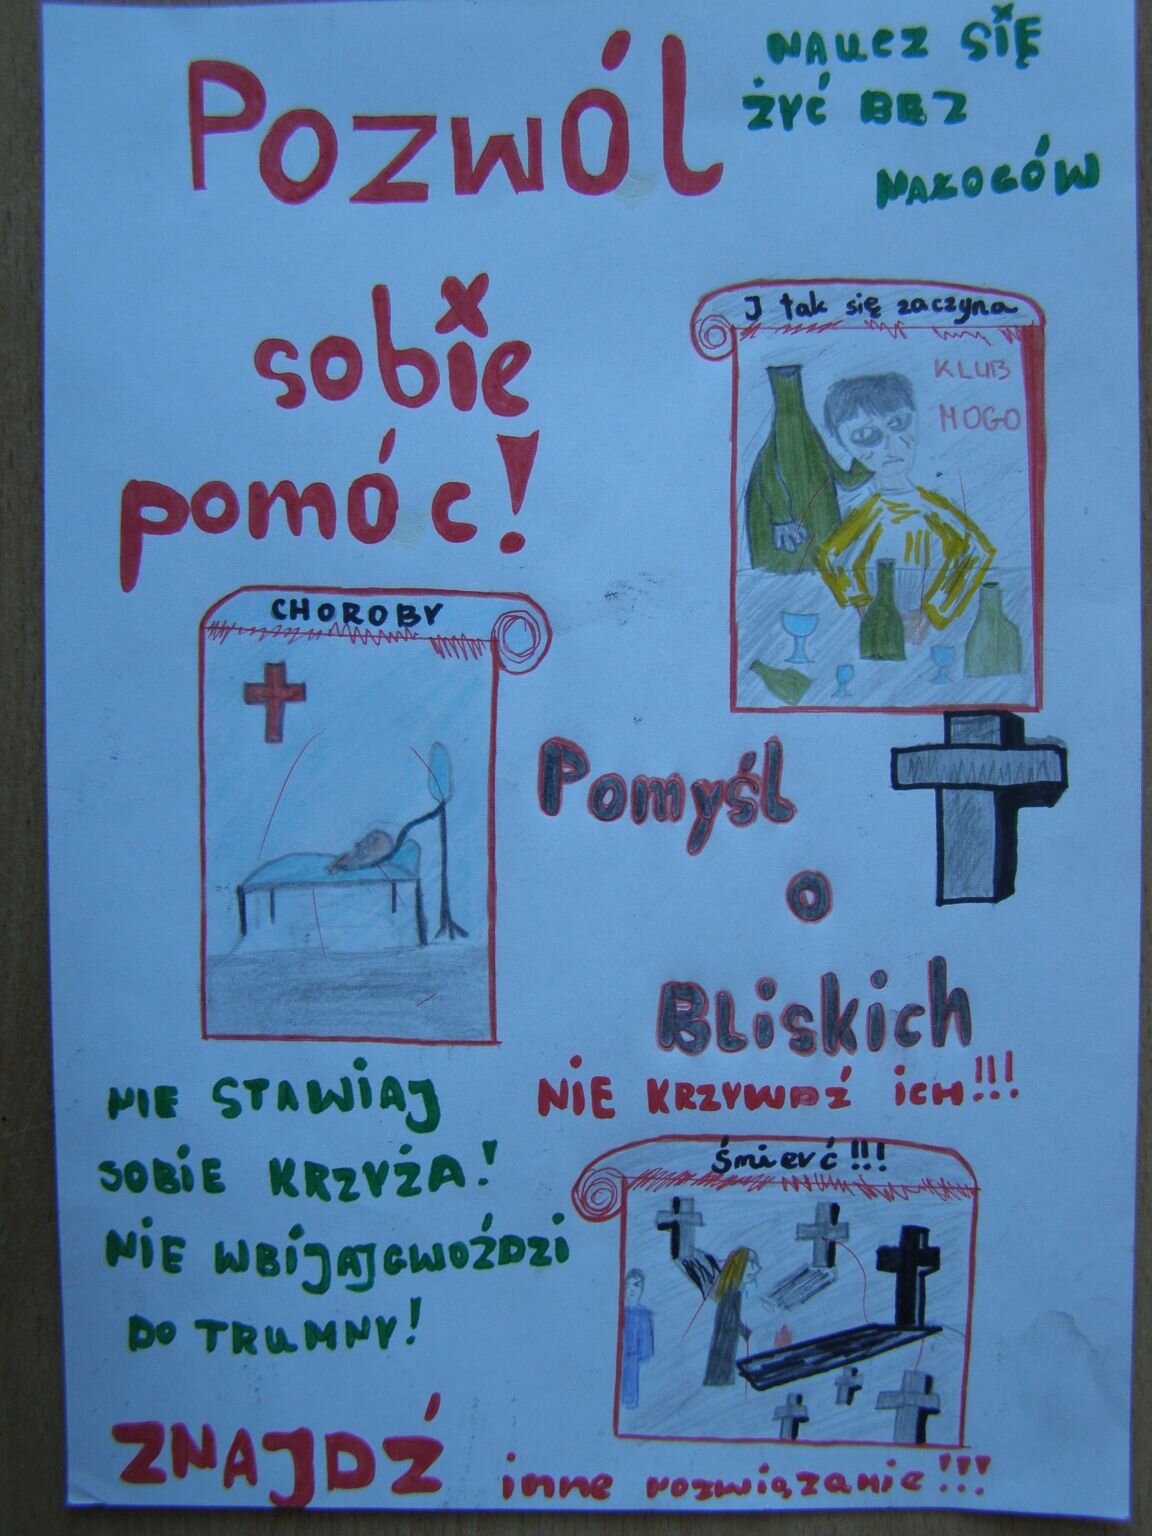 Pozwól
sobie
pomóc!
NAUCZ SIĘ
ŻYĆ BEZ
NAŁOGÓW
I tak się zaczyna
KLUB
MOGO
CHOROBY
Pomyśl
o
Bliskich
NIE KRZYWDŹ ICH!!!
NIE STAWIAJ
SOBIE KRZYŻA!
NIE WBIJAJ GWOŹDZI
DO TRUMNY!
Śmierć!!!
ZNAJDŹ inne rozwiązanie!!!